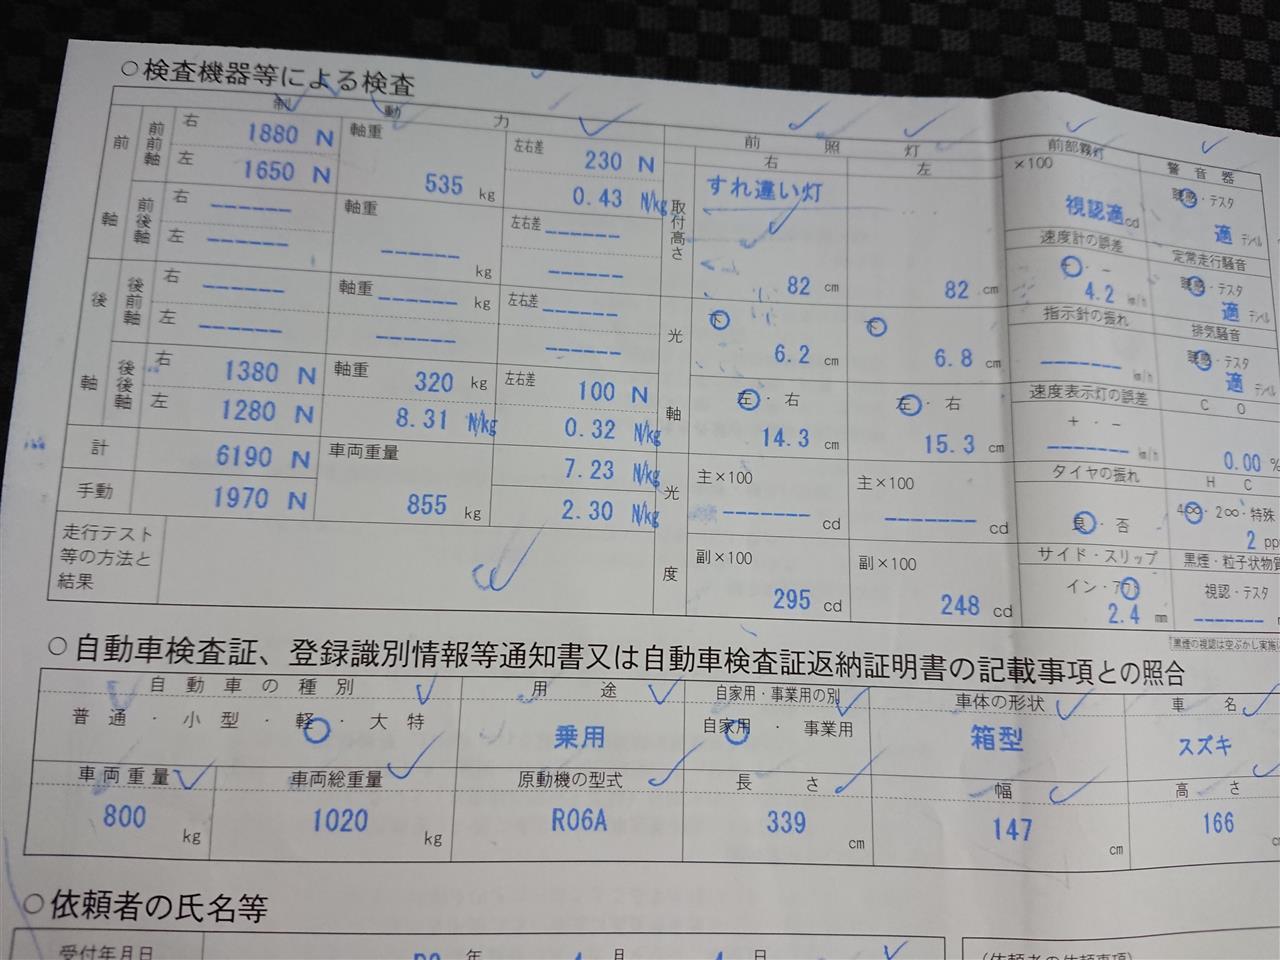 ○検査機器等による検査
制動力
前照灯
前部霧灯
警音器
前軸
前前軸
右 1880 N
左 1650 N
軸重
535 kg
左右差 230 N
0.43 N/kg
前後軸
右 ------
左 ------
軸重
------ kg
左右差 ------
------
後軸
後前軸
右 ------
左 ------
軸重 ------ kg
------
左右差 ------
------
後後軸
右 1380 N
左 1280 N
軸重 320 kg
8.31 N/kg
左右差 100 N
0.32 N/kg
計
6190 N
車両重量
855 kg
7.23 N/kg
手動
1970 N
2.30 N/kg
走行テスト等の方法と結果
右
左
取付高さ
すれ違い灯
82 cm
82 cm
光軸
下
6.2 cm
下
6.8 cm
左・右
14.3 cm
左・右
15.3 cm
光度
主×100
------- cd
主×100
------- cd
副×100
295 cd
副×100
248 cd
×100
視認適 cd
速度計の誤差
+・-
4.2 km/h
指示針の振れ
------- km/h
速度表示灯の誤差
+・-
------- km/h
タイヤの振れ
良・否
サイド・スリップ
イン・アウト
2.4 mm
聴感・テスタ
適 デシベル
定常走行騒音
聴感・テスタ
適 デシベル
排気騒音
聴感・テスタ
適 デシベル
CO
0.00 %
HC
4∞・2∞・特殊
2 pp
黒煙・粒子状物質
視認・テスタ
-------
黒煙の視認は空ぶかし実施
○自動車検査証、登録識別情報等通知書又は自動車検査証返納証明書の記載事項との照合
自動車の種別
普通・小型・軽・大特
用途
乗用
自家用・事業用の別
自家用・事業用
車体の形状
箱型
車名
スズキ
車両重量
800 kg
車両総重量
1020 kg
原動機の型式
R06A
長さ
339 cm
幅
147 cm
高さ
166
○依頼者の氏名等
受付年月日
年
月
日
(依頼者の依頼事項)